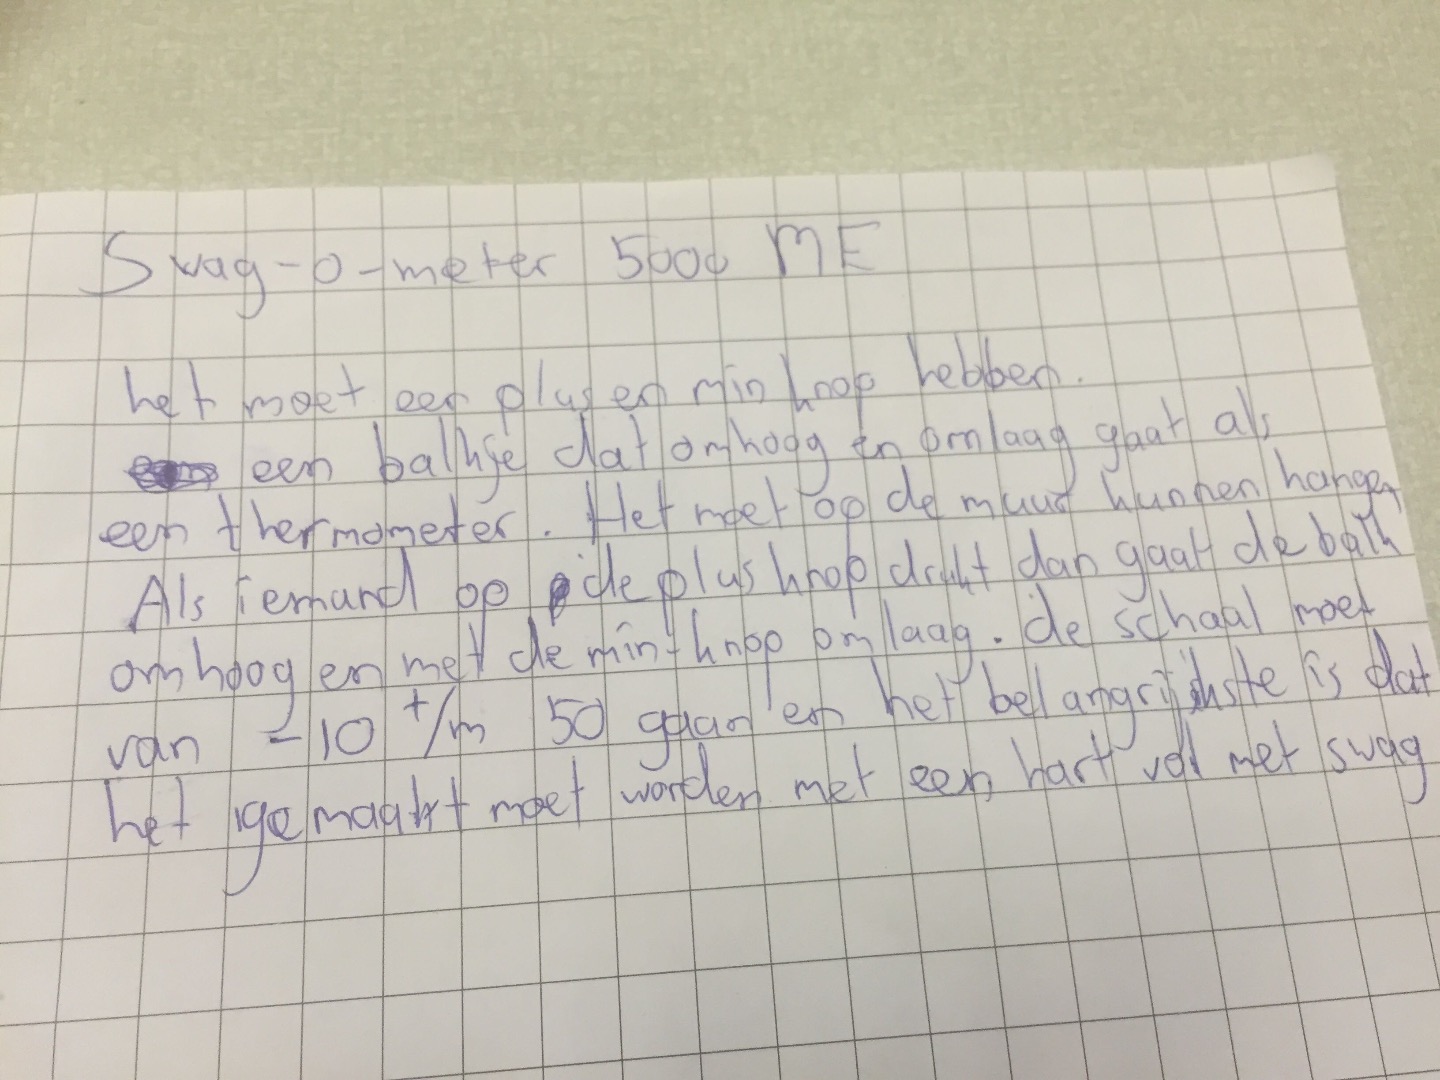 Swag-o-meter 5000 ME
het moet een plus en min knop hebben.
een balkje dat omhoog en omlaag gaat als
een thermometer. Het moet op de muur kunnen hangen
Als iemand op de plus knop drukt dan gaat de balk
omhoog en met de min knop omlaag. de schaal moet
van -10 t/m 50 gaan en het belangrijkste is dat
het gemaakt moet worden met een hart vol met swag